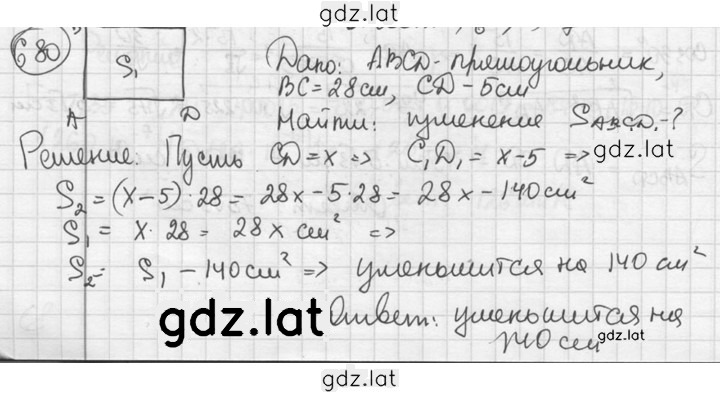 gdz.lat
680
S₁
Дано: ABCD - прямоугольник,
BC = 28 см, CD - 5 см
A D
Найти: изменение S_ABCD. - ?
gdz.lat
Решение: Пусть CD = x => C₁D₁ = x - 5 =>
S₂ = (x - 5) · 28 = 28x - 5 · 28 = 28x - 140 см²
S₁ = x · 28 = 28x см² =>
S₂ = S₁ - 140 см² => уменьшится на 140 см²
gdz.lat
Ответ: уменьшится на
140 см
gdz.lat
gdz.lat